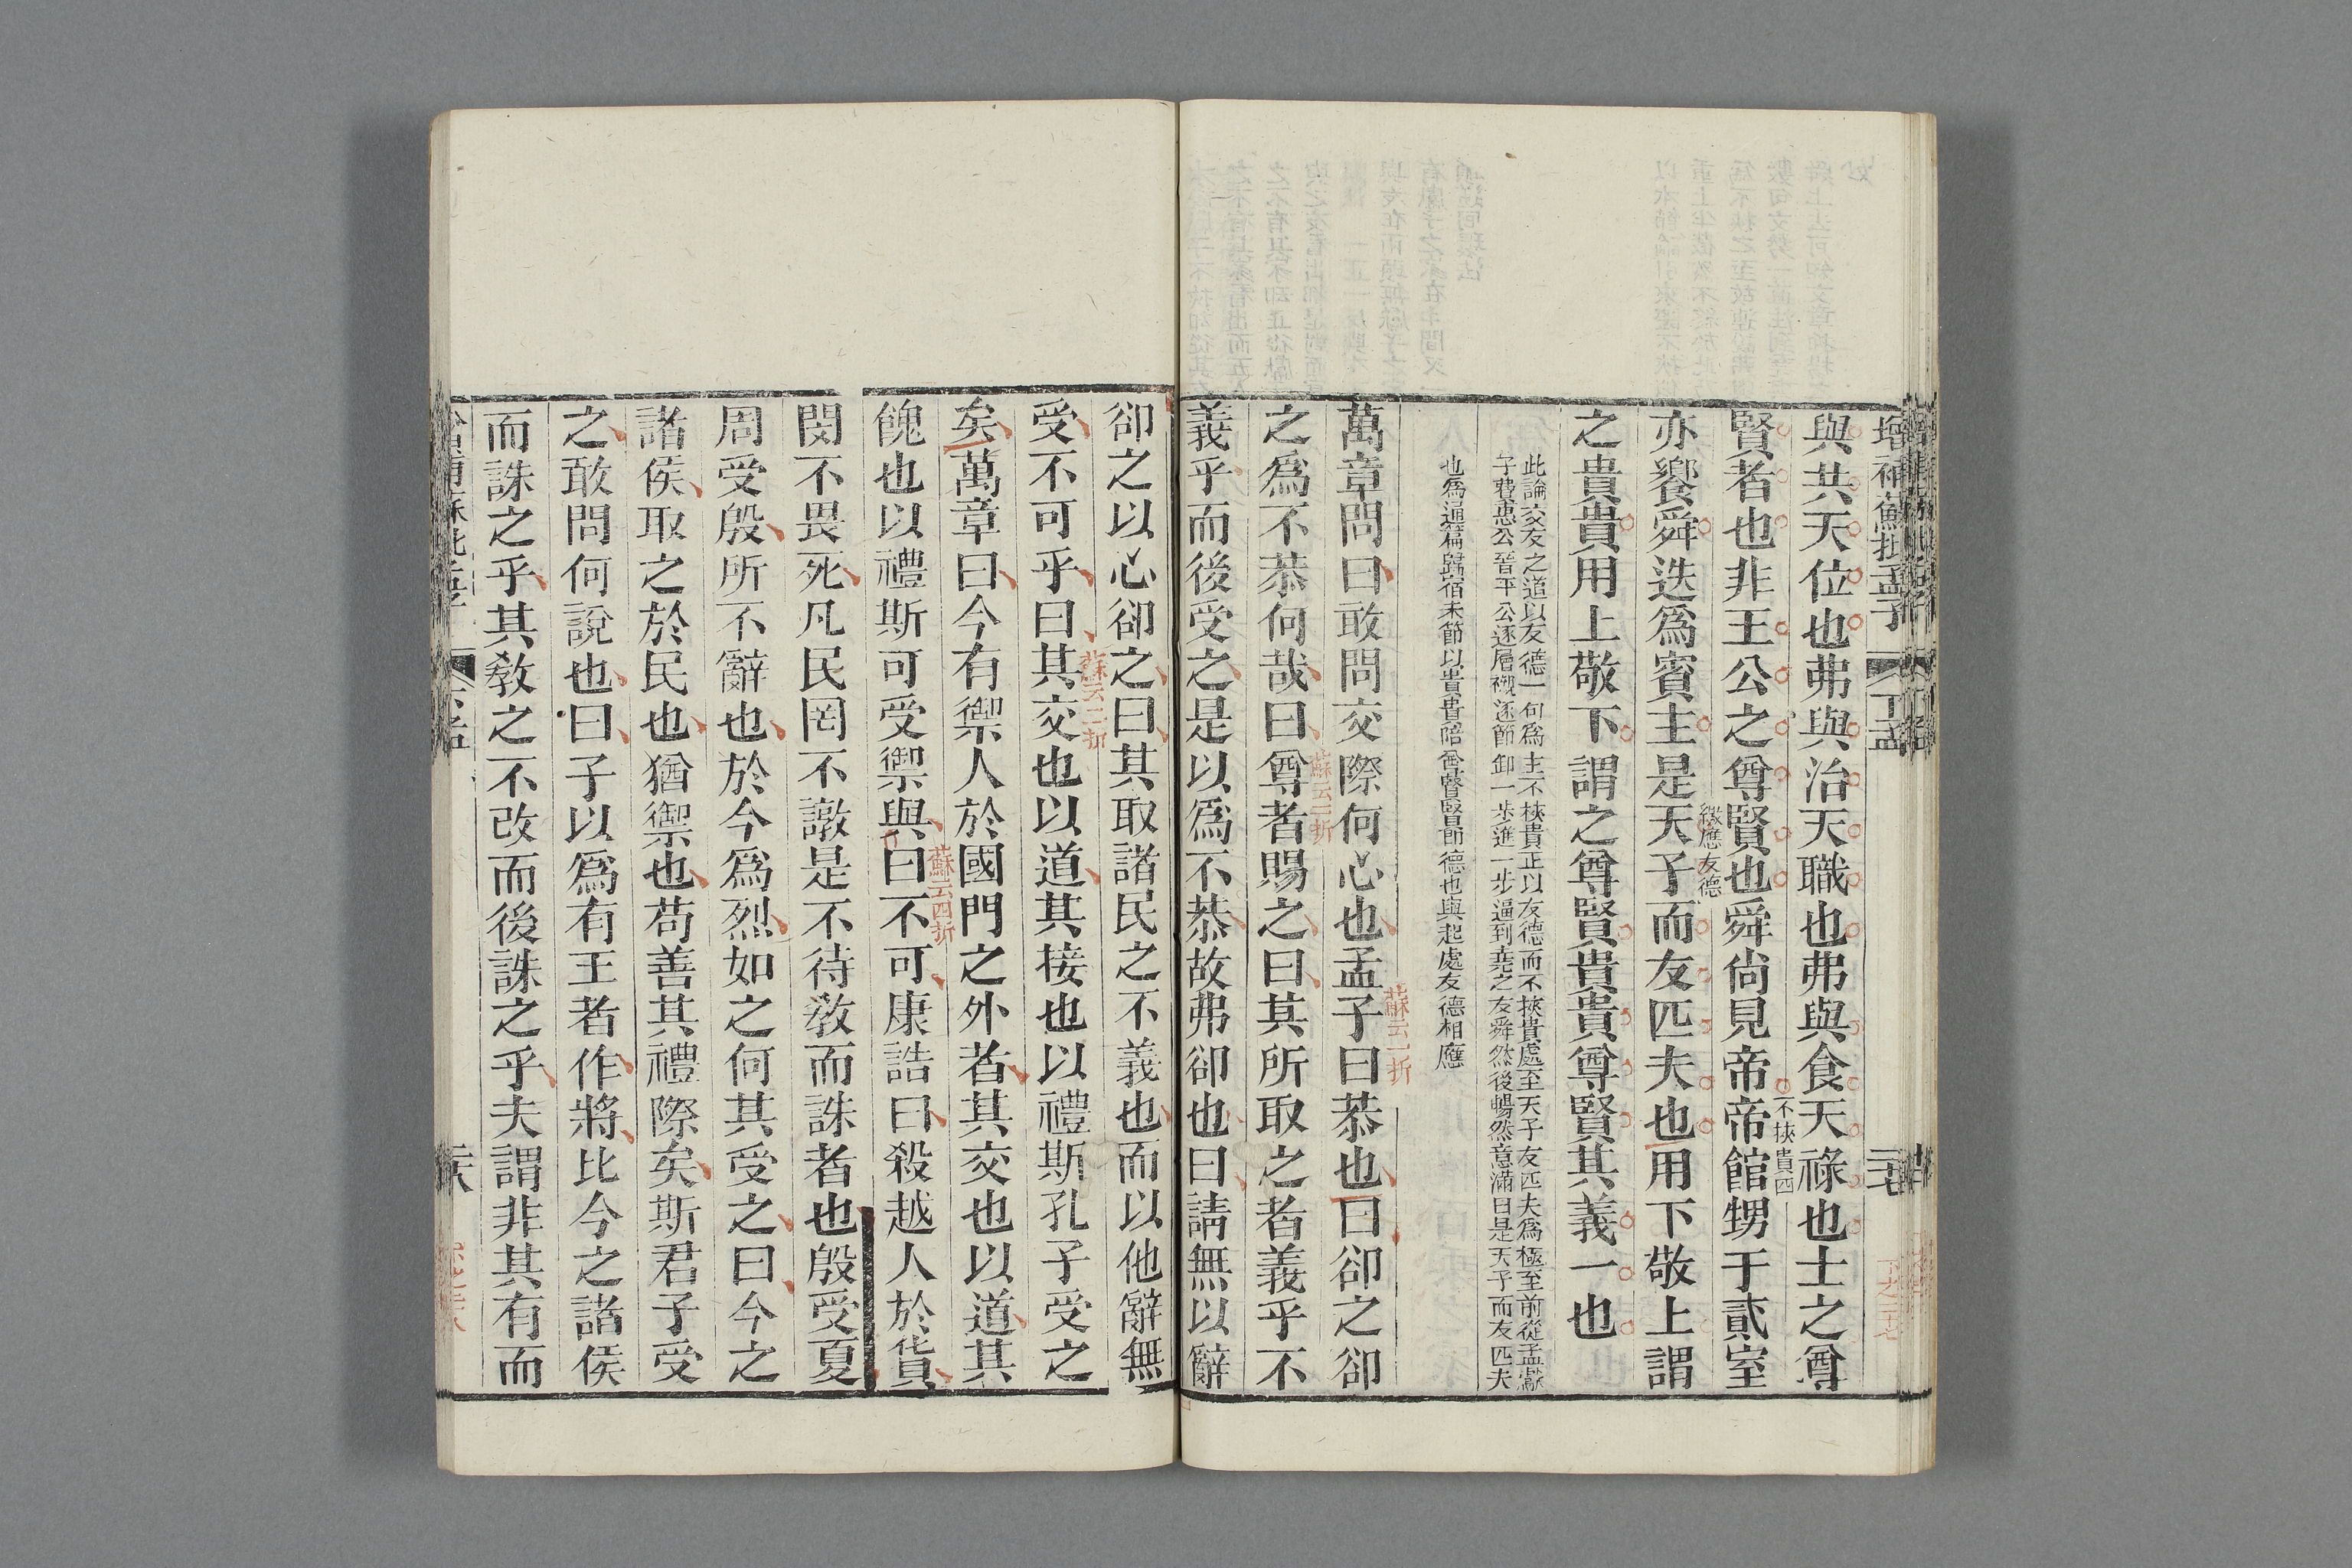 增補蘇批孟子
與共天位也弗與治天職也弗與食天祿也士之尊
賢者也非王公之尊賢也舜尙見帝帝館甥于貳室
不挾貴四
亦饗舜迭爲賓主是天子而友匹夫也用下敬上謂
緻應友德
之貴貴用上敬下謂之尊賢貴貴尊賢其義一也
此論交友之道以友德一何爲主不挾貴正以友德而不挾貴處至天子友匹夫爲極至前從孟獻
子費惠公晉平公逐層襯逐節卸一步進一步逼到堯之友舜然後暢然意滿曰是天子而友匹夫
也爲通篇歸宿末節以貴貴陪尊賢賢節德也與起處友德相應
萬章問曰敢問交際何心也孟子曰恭也曰卻之卻
蘇云一折
之爲不恭何哉曰尊者賜之曰其所取之者義乎不
蘇云二折
義乎而後受之是以爲不恭故弗卻也曰請無以辭
卻之以心卻之曰其取諸民之不義也而以他辭無
受不可乎曰其交也以道其接也以禮斯孔子受之
蘇云三折
矣萬章曰今有禦人於國門之外者其交也以道其
餽也以禮斯可受禦與曰不可康誥曰殺越人於貨
蘇云四折
閔不畏死凡民罔不譈是不待教而誅者也殷受夏
周受殷所不辭也於今爲烈如之何其受之曰今之
諸侯取之於民也猶禦也苟善其禮際矣斯君子受
之敢問何說也曰子以爲有王者作將比今之諸侯
而誅之乎其敎之不改而後誅之乎夫謂非其有而